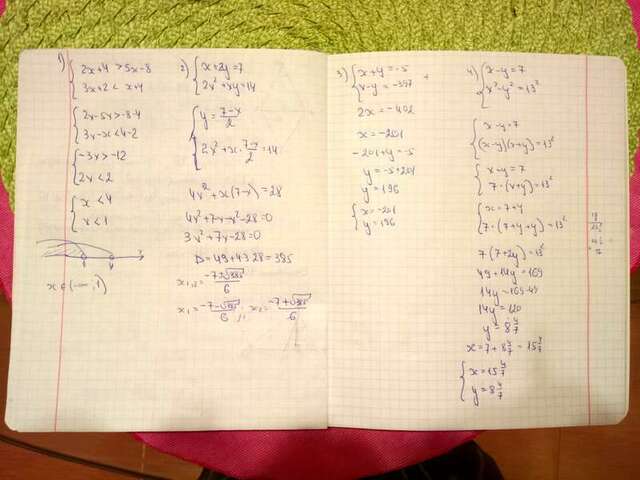 1) { 2x+4 > 5x-8
3x+2 < x+4
{ 2x-5x > -8-4
3x-x < 4-2
{ -3x > -12
2x < 2
{ x < 4
x < 1
1 4 x
x ∈ (-∞, 1)
2) { x+2y=7
2x²+xy=14
{ y = (7-x)/2
2x²+x·(7-x)/2=14
4x²+x(7-x)=28
4x²+7x-x²-28=0
3x²+7x-28=0
D=49+4·3·28=385
x₁,₂ = (-7±√385)/6
x₁ = (-7-√385)/6 ; x₂ = (-7+√385)/6
3) { x+y=-5
x-y=-397
2x=-402
x=-201
-201+y=-5
y=-5+201
y=196
{ x=-201
y=196
4) { x-y=7
x²-y²=13²
{ x-y=7
(x-y)(x+y)=13²
{ x-y=7
7·(x+y)=13²
{ x=7+y
7·(7+y+y)=13²
7(7+2y)=13²
49+14y=169
14y=169-49
14y=120
y=8 4/7
x=7+8 4/7=15 4/7
{ x=15 4/7
y=8 4/7